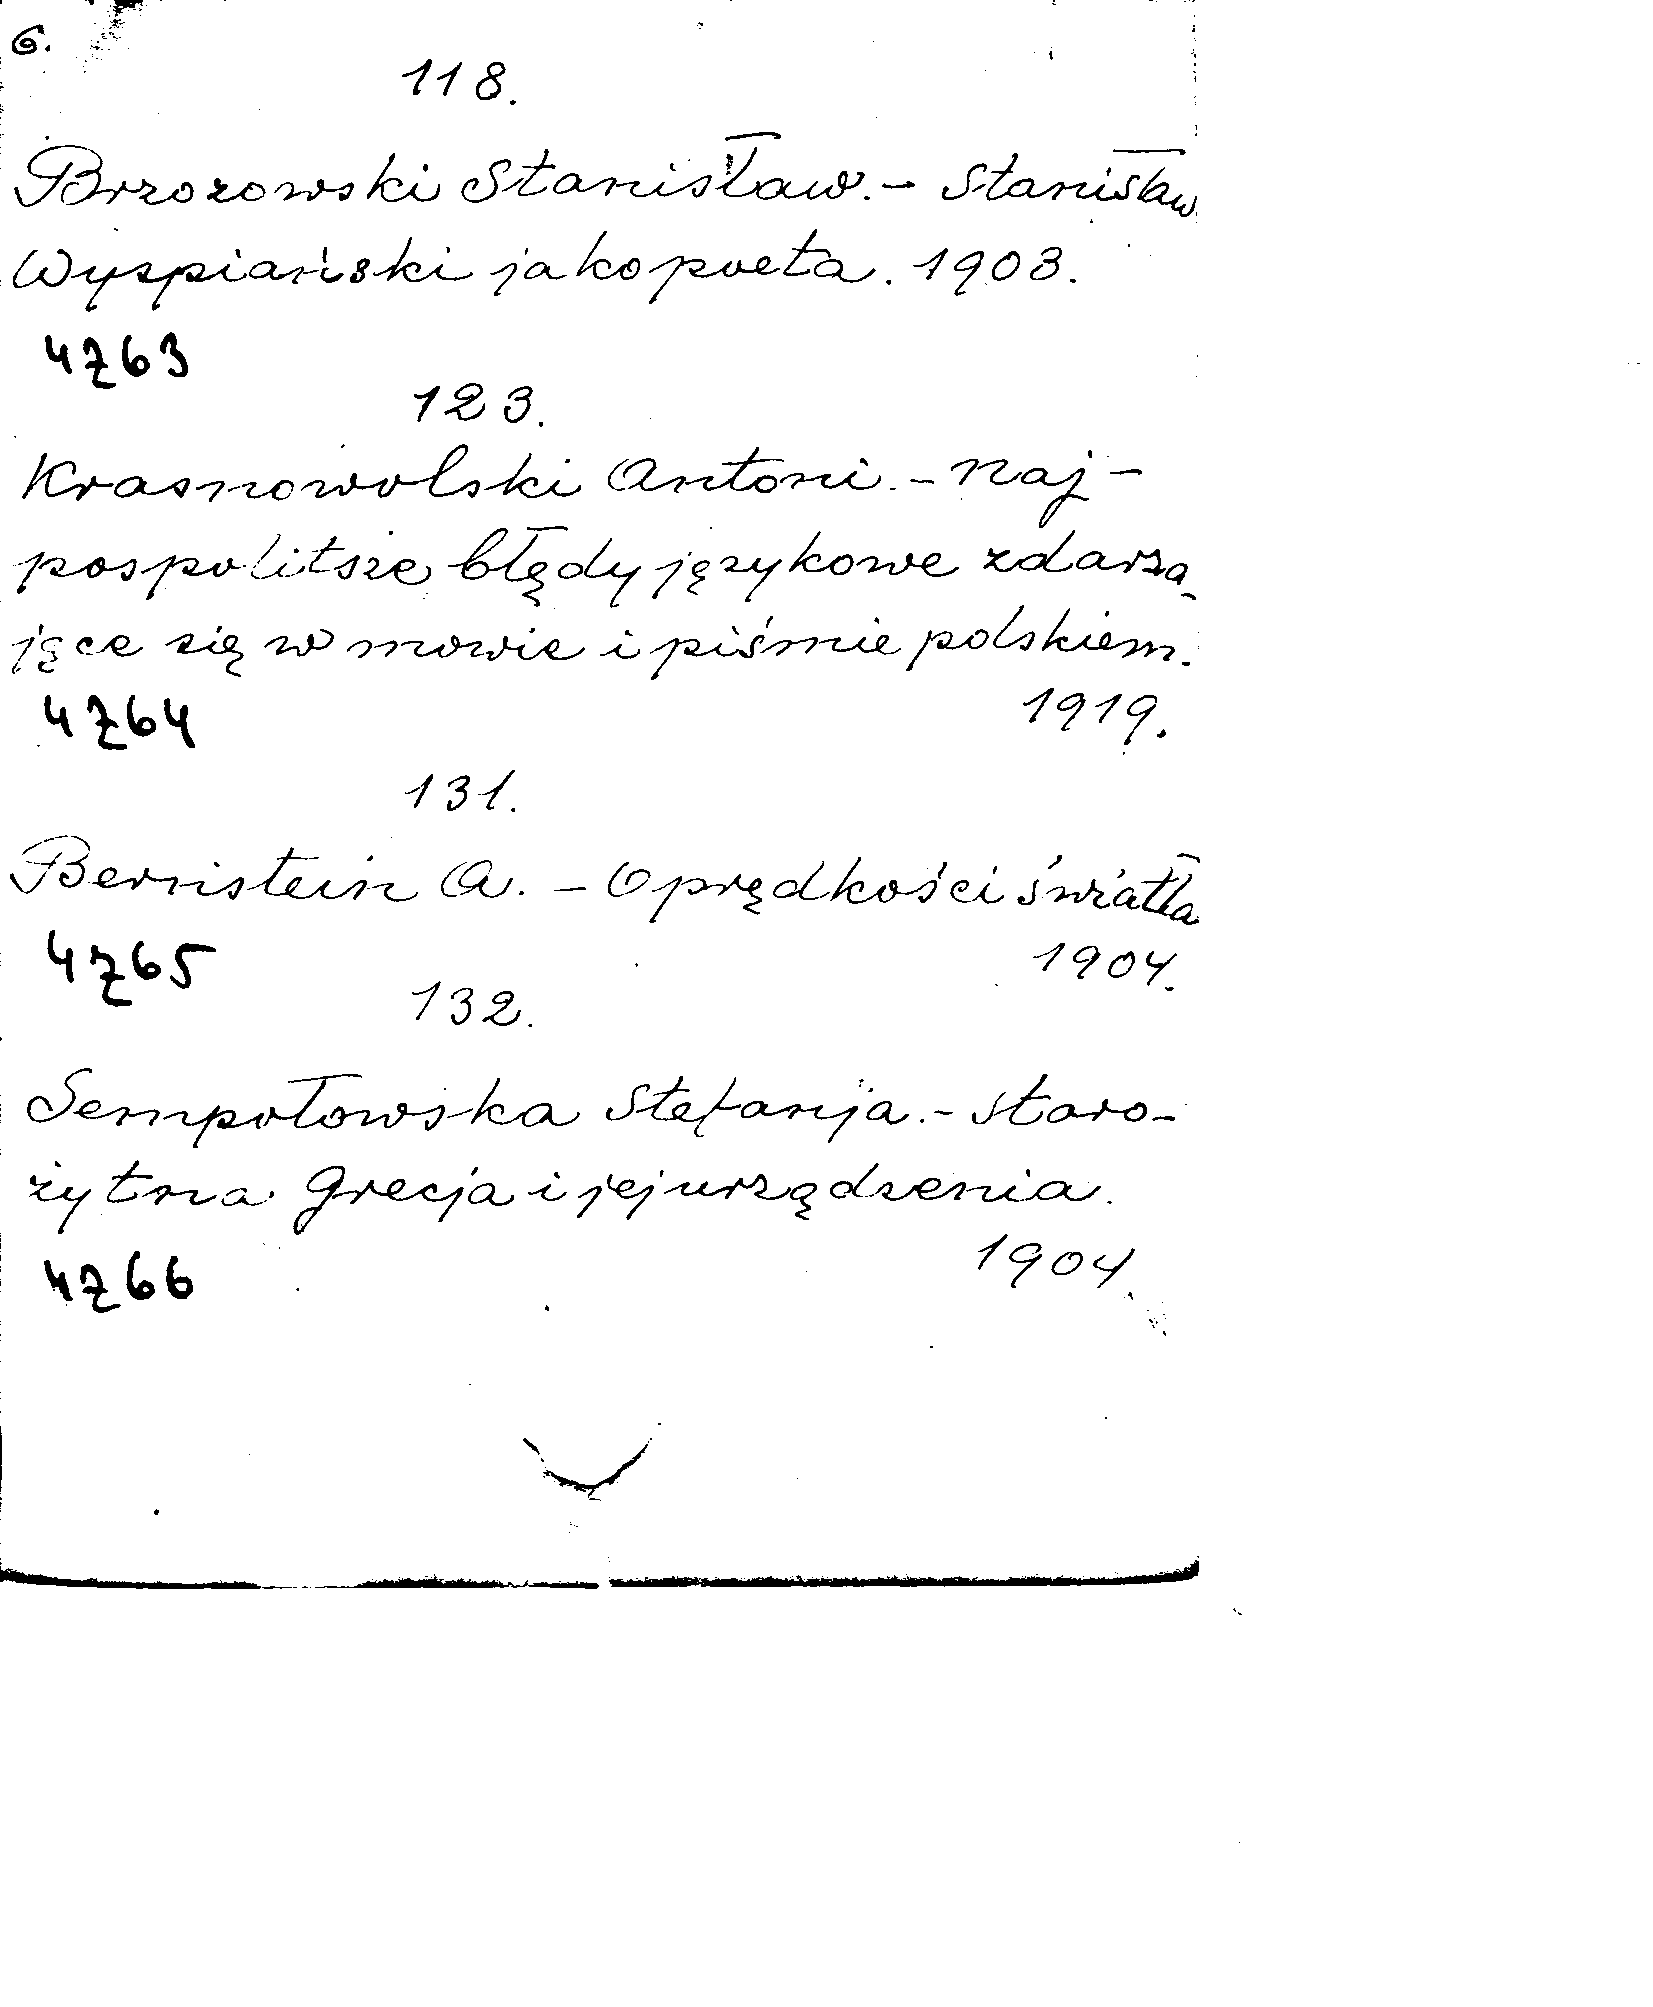 6.
118.
Brzozowski Stanisław. - Stanisław
Wyspiański jako poeta. 1903.
4263
123.
Krasnowolski Antoni. - Naj-
pospolitsze błędy językowe zdarza-
jęce się w mowie i piśmie polskiem.
4264 1919.
131.
Bernstein A. - O prędkości światła
4265 1904.
132.
Sempołowska Stefanja. - Staro-
żytna Grecja i jej urządzenia.
4266 1904.